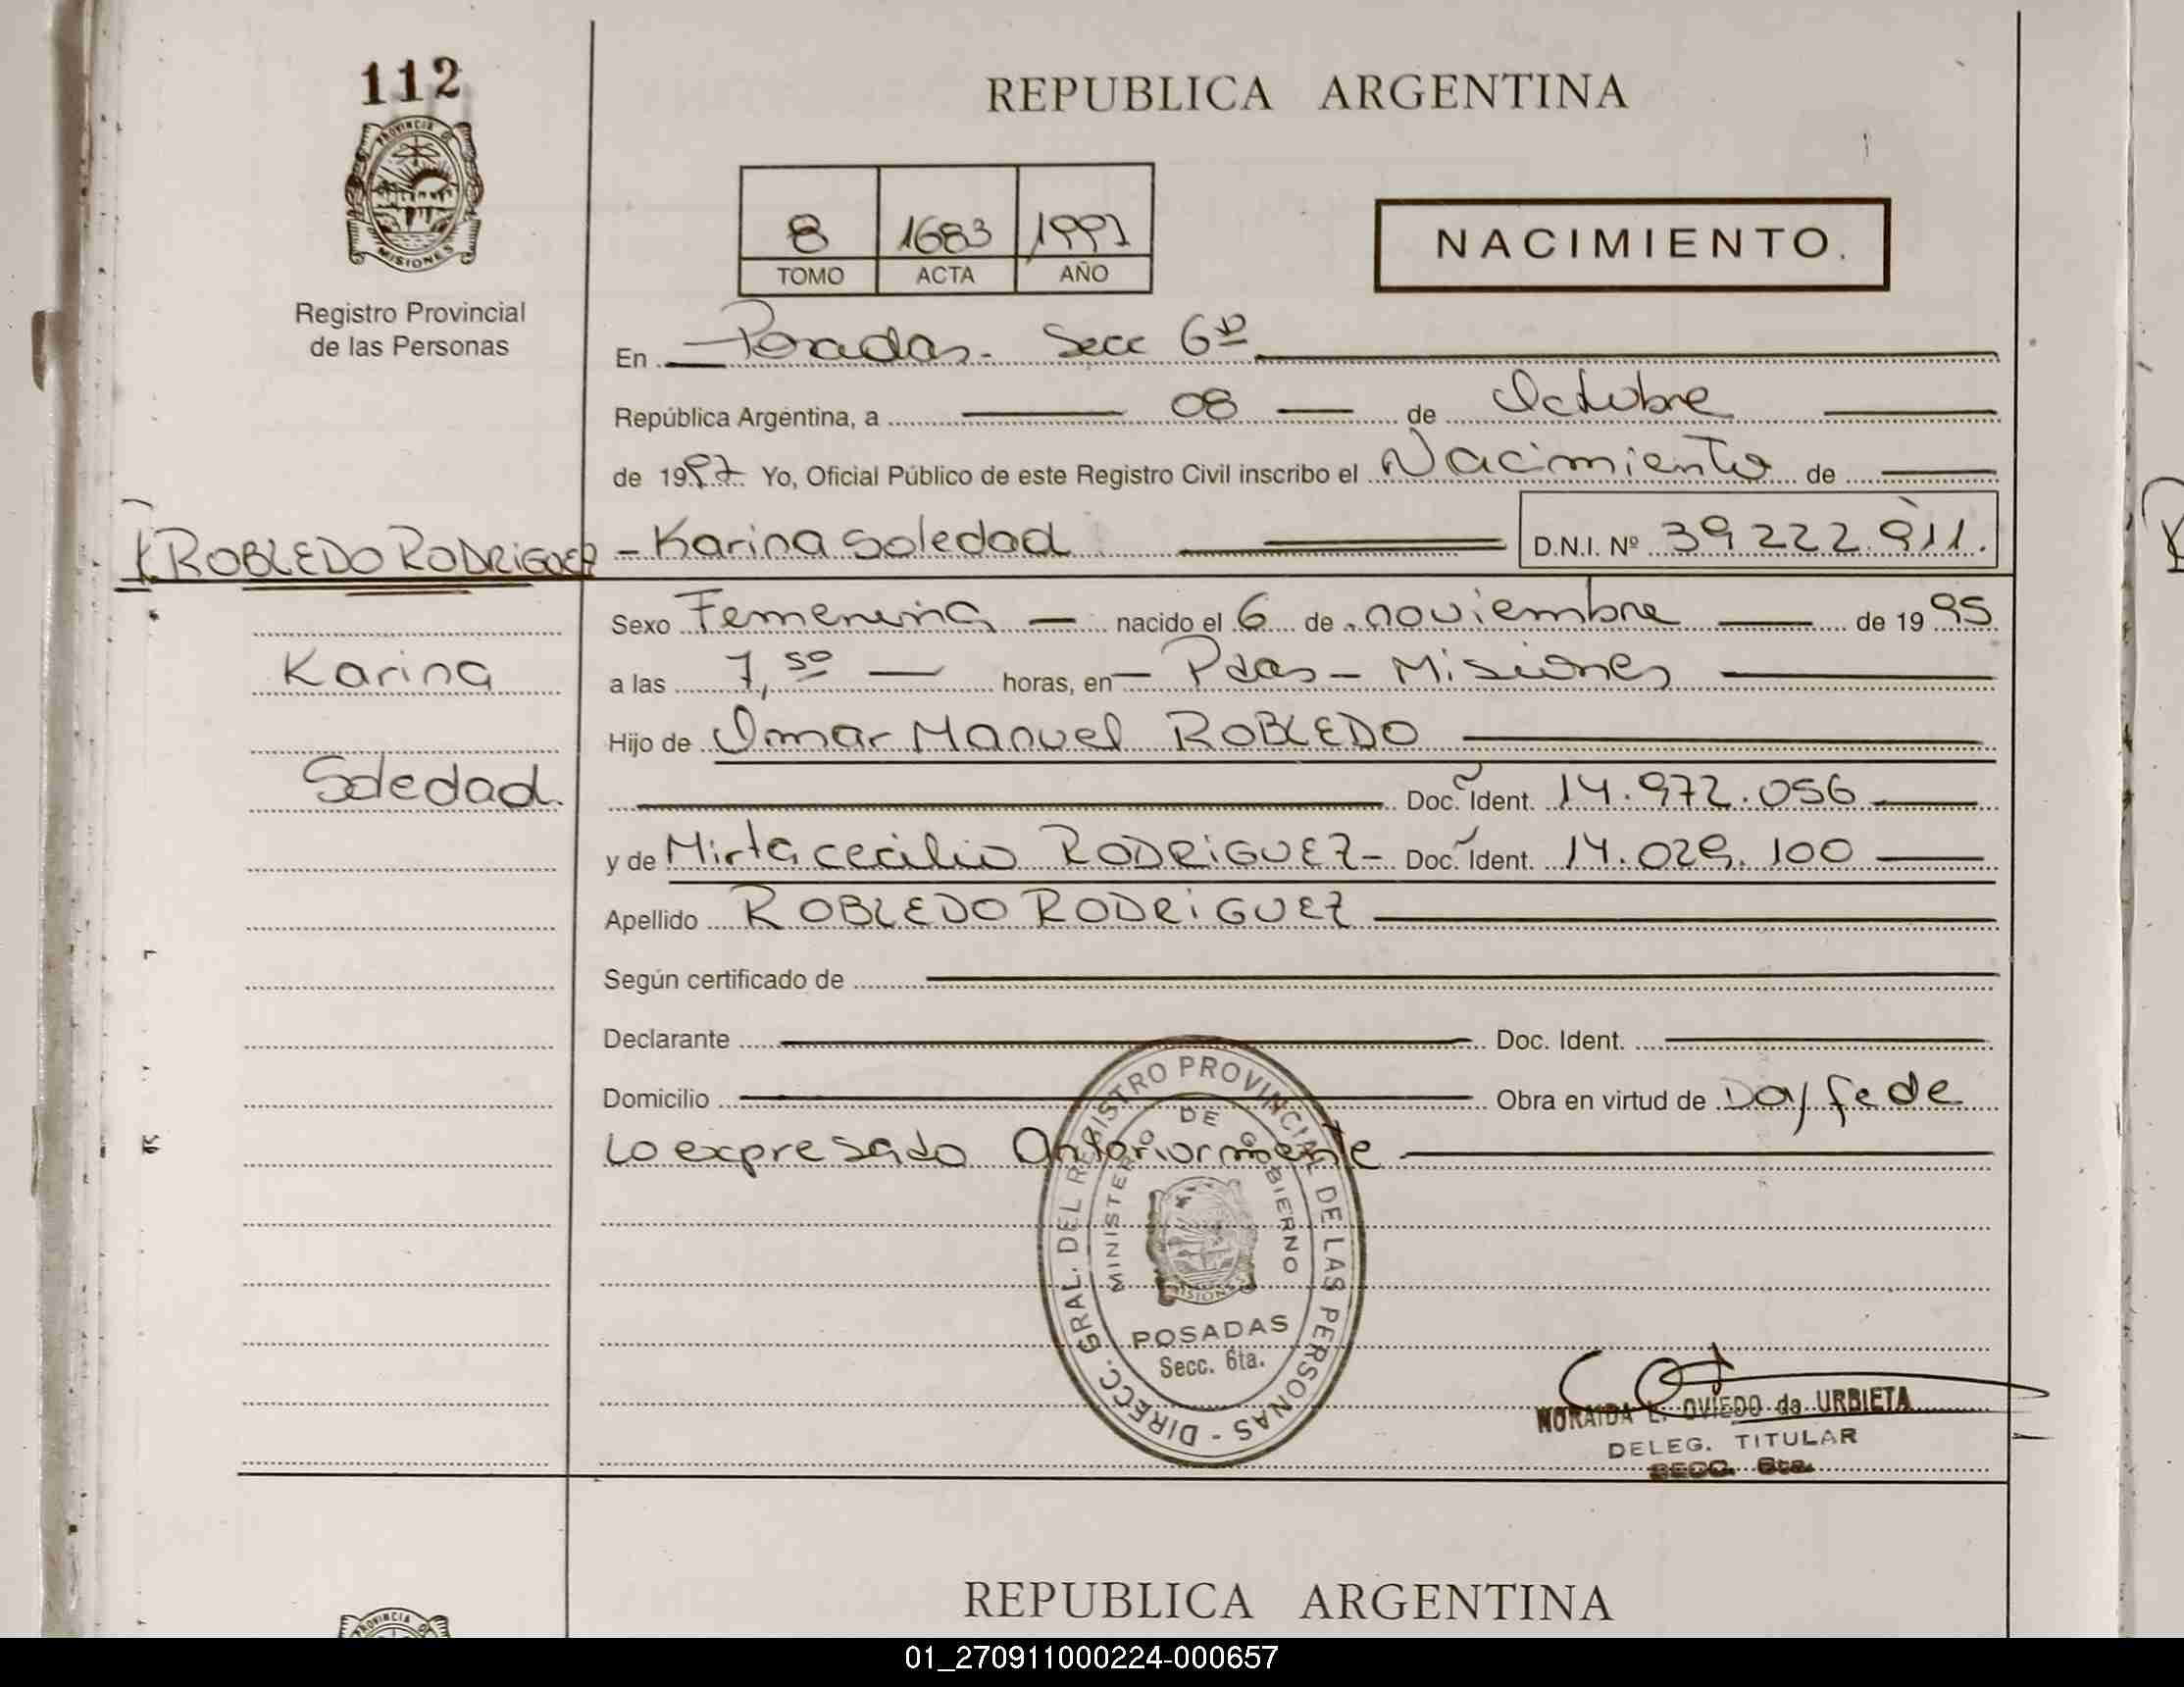 112
REPUBLICA ARGENTINA
PROVINCIA DE
MISIONES
8 1683 1997
TOMO ACTA AÑO
NACIMIENTO.
Registro Provincial
de las Personas
En Posadas - Secc 6ta
República Argentina, a 08 de Octubre
de 1997 Yo, Oficial Público de este Registro Civil inscribo el Nacimiento de
ROBLEDO RODRIGUEZ - Karina Soledad D.N.I. Nº 39.222.911.
Sexo Femenina nacido el 6 de noviembre de 1995
Karina
a las 7,50 horas, en Pdas - Misiones
Hijo de Omar Manuel ROBLEDO
Soledad
Doc. Ident. 14.972.056
y de Mirta cecilia RODRIGUEZ - Doc. Ident. 14.029.100
Apellido ROBLEDO RODRIGUEZ
Según certificado de
Declarante Doc. Ident.
Domicilio Obra en virtud de Doy fe de
Lo expresado Anteriormente
DIRECC. GRAL. DEL REGISTRO PROVINCIAL DE LAS PERSONAS -
MINISTERIO DE GOBIERNO
MISIONES
POSADAS
Secc. 6ta.
NORAIDA L. OVIEDO de URBIETA
DELEG. TITULAR
SECC. 6ta.
REPUBLICA ARGENTINA
PROVINCIA DE
01_270911000224-000657